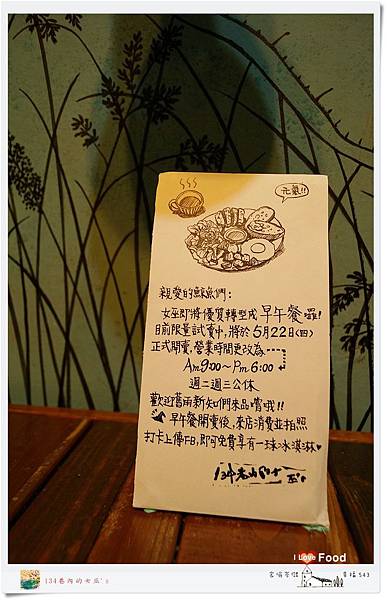 元氣!!
親愛的鄉親們:
女巫即將優質轉型成 早午餐 囉!
目前限量試賣中,將於5月22日(四)
正式開賣,營業時間更改為
Am 9:00～Pm 6:00
週二週三公休
歡迎舊雨新知們來品嚐哦!!
早午餐開賣後,來店消費並拍照
打卡上傳FB,即可免費享有一球冰淇淋♥
I Love Food
134巷內的女巫's
幸福543